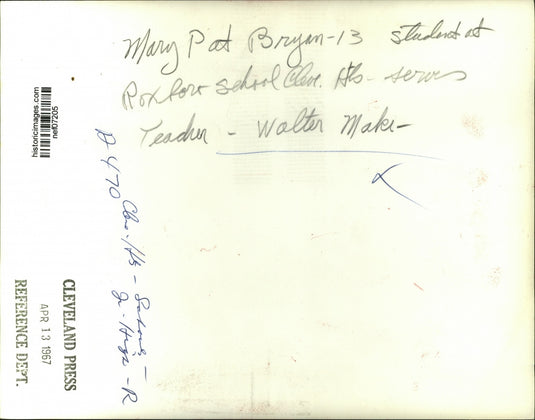 Mary Pat Bryan-13 student at
Roxboro School Cleve. Hts- serves
Teacher - Walter Make-
A 470 Cleve. Hts - Schools -
Jr. High - R
historicimages.com
nef07205
CLEVELAND PRESS
APR 13 1967
REFERENCE DEPT.